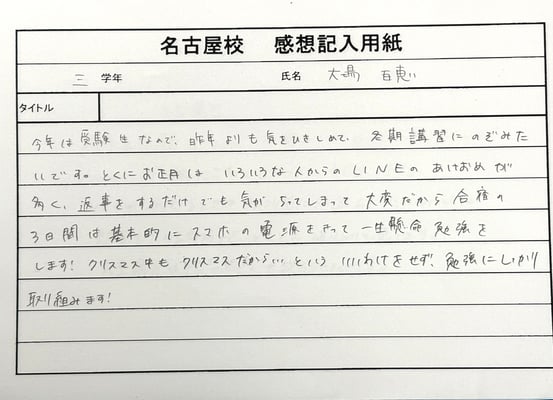 名古屋校 感想記入用紙
三 学年 氏名 大嶋 百恵
タイトル
今年は受験生なので、昨年よりも気をひきしめて、冬期講習にのぞみた
いです。とくにお正月は いろいろな人からのLINEのあけおめが
多く、返事をするだけでも気がちってしまって大変だから合宿の
3日間は基本的にスマホの電源をきって一生懸命勉強を
します! クリスマスもクリスマスだからいいという いいわけをせず、勉強にしっかり
取り組みます!